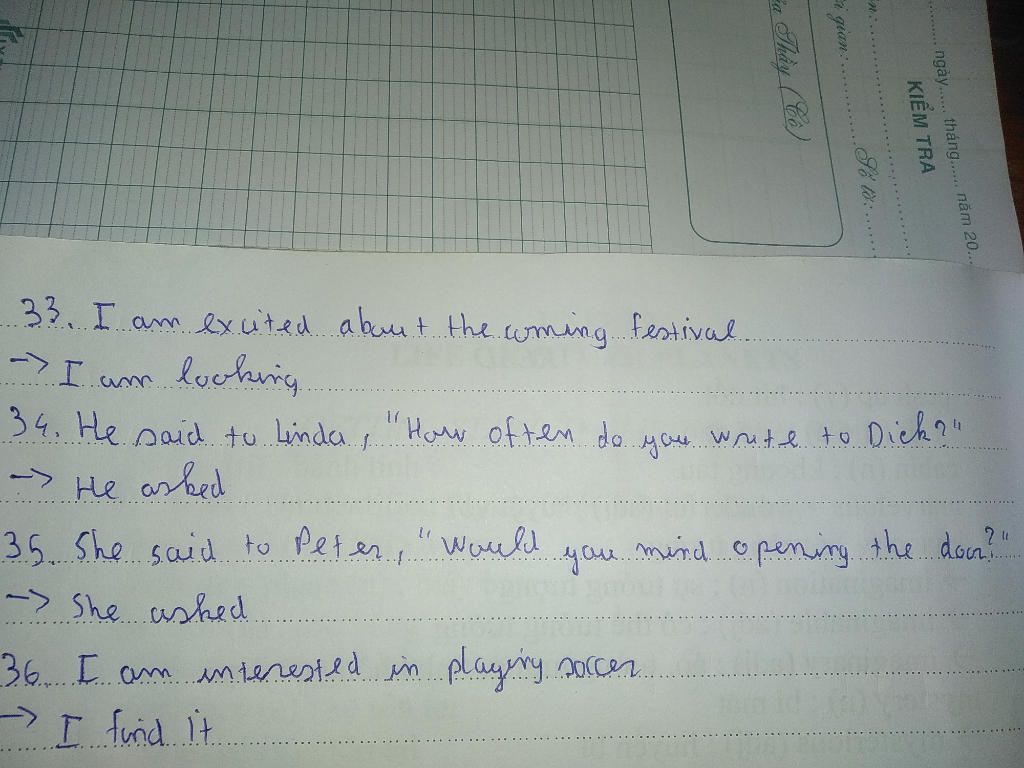 ngày...... tháng....... năm 20...
KIỂM TRA
Số tờ:
gian:
Thầy (Cô)
33. I am excited about the coming festival.
-> I am looking
34. He said to Linda, "How often do you write to Dick?"
-> He asked
35. She said to Peter, "Would you mind opening the door?"
-> She asked
36. I am interested in playing soccer
-> I find it